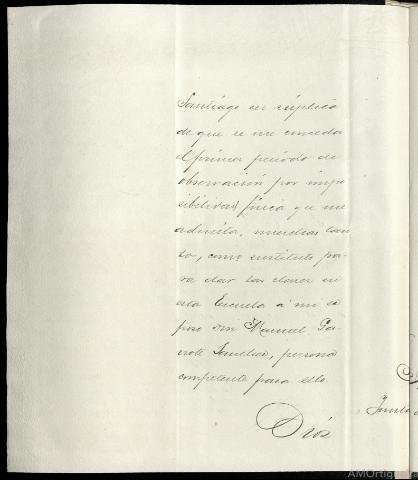 Santiago en súplica
de que se me conceda
el primer período de
observación por impo
sibilidad física que me
, mientras tan
to, como sustituto pa-
ra dar las clases en
esta Escuela á mi es
poso Don Manuel
persona
competente para ello.
Dios
Junta
AMOrtigueira